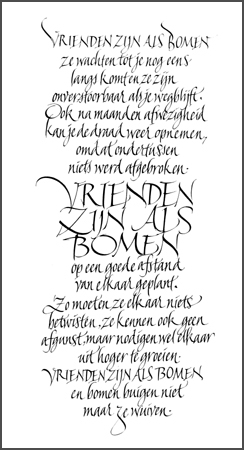 VRIENDEN ZIJN ALS BOMEN
ze wachten tot je nog eens
langs komt en ze zijn
onverstoorbaar als je wegblijft.
Ook na maanden afwezigheid
kan je de draad weer opnemen,
omdat ondertussen
niets werd afgebroken.
VRIENDEN
ZIJN ALS
BOMEN
op een goede afstand
van elkaar geplant.
Zo moeten ze elkaar niets
betwisten, ze kennen ook geen
afgunst, maar nodigen wel elkaar
uit hoger te groeien.
VRIENDEN ZIJN ALS BOMEN
en bomen buigen niet
maar ze wuiven.